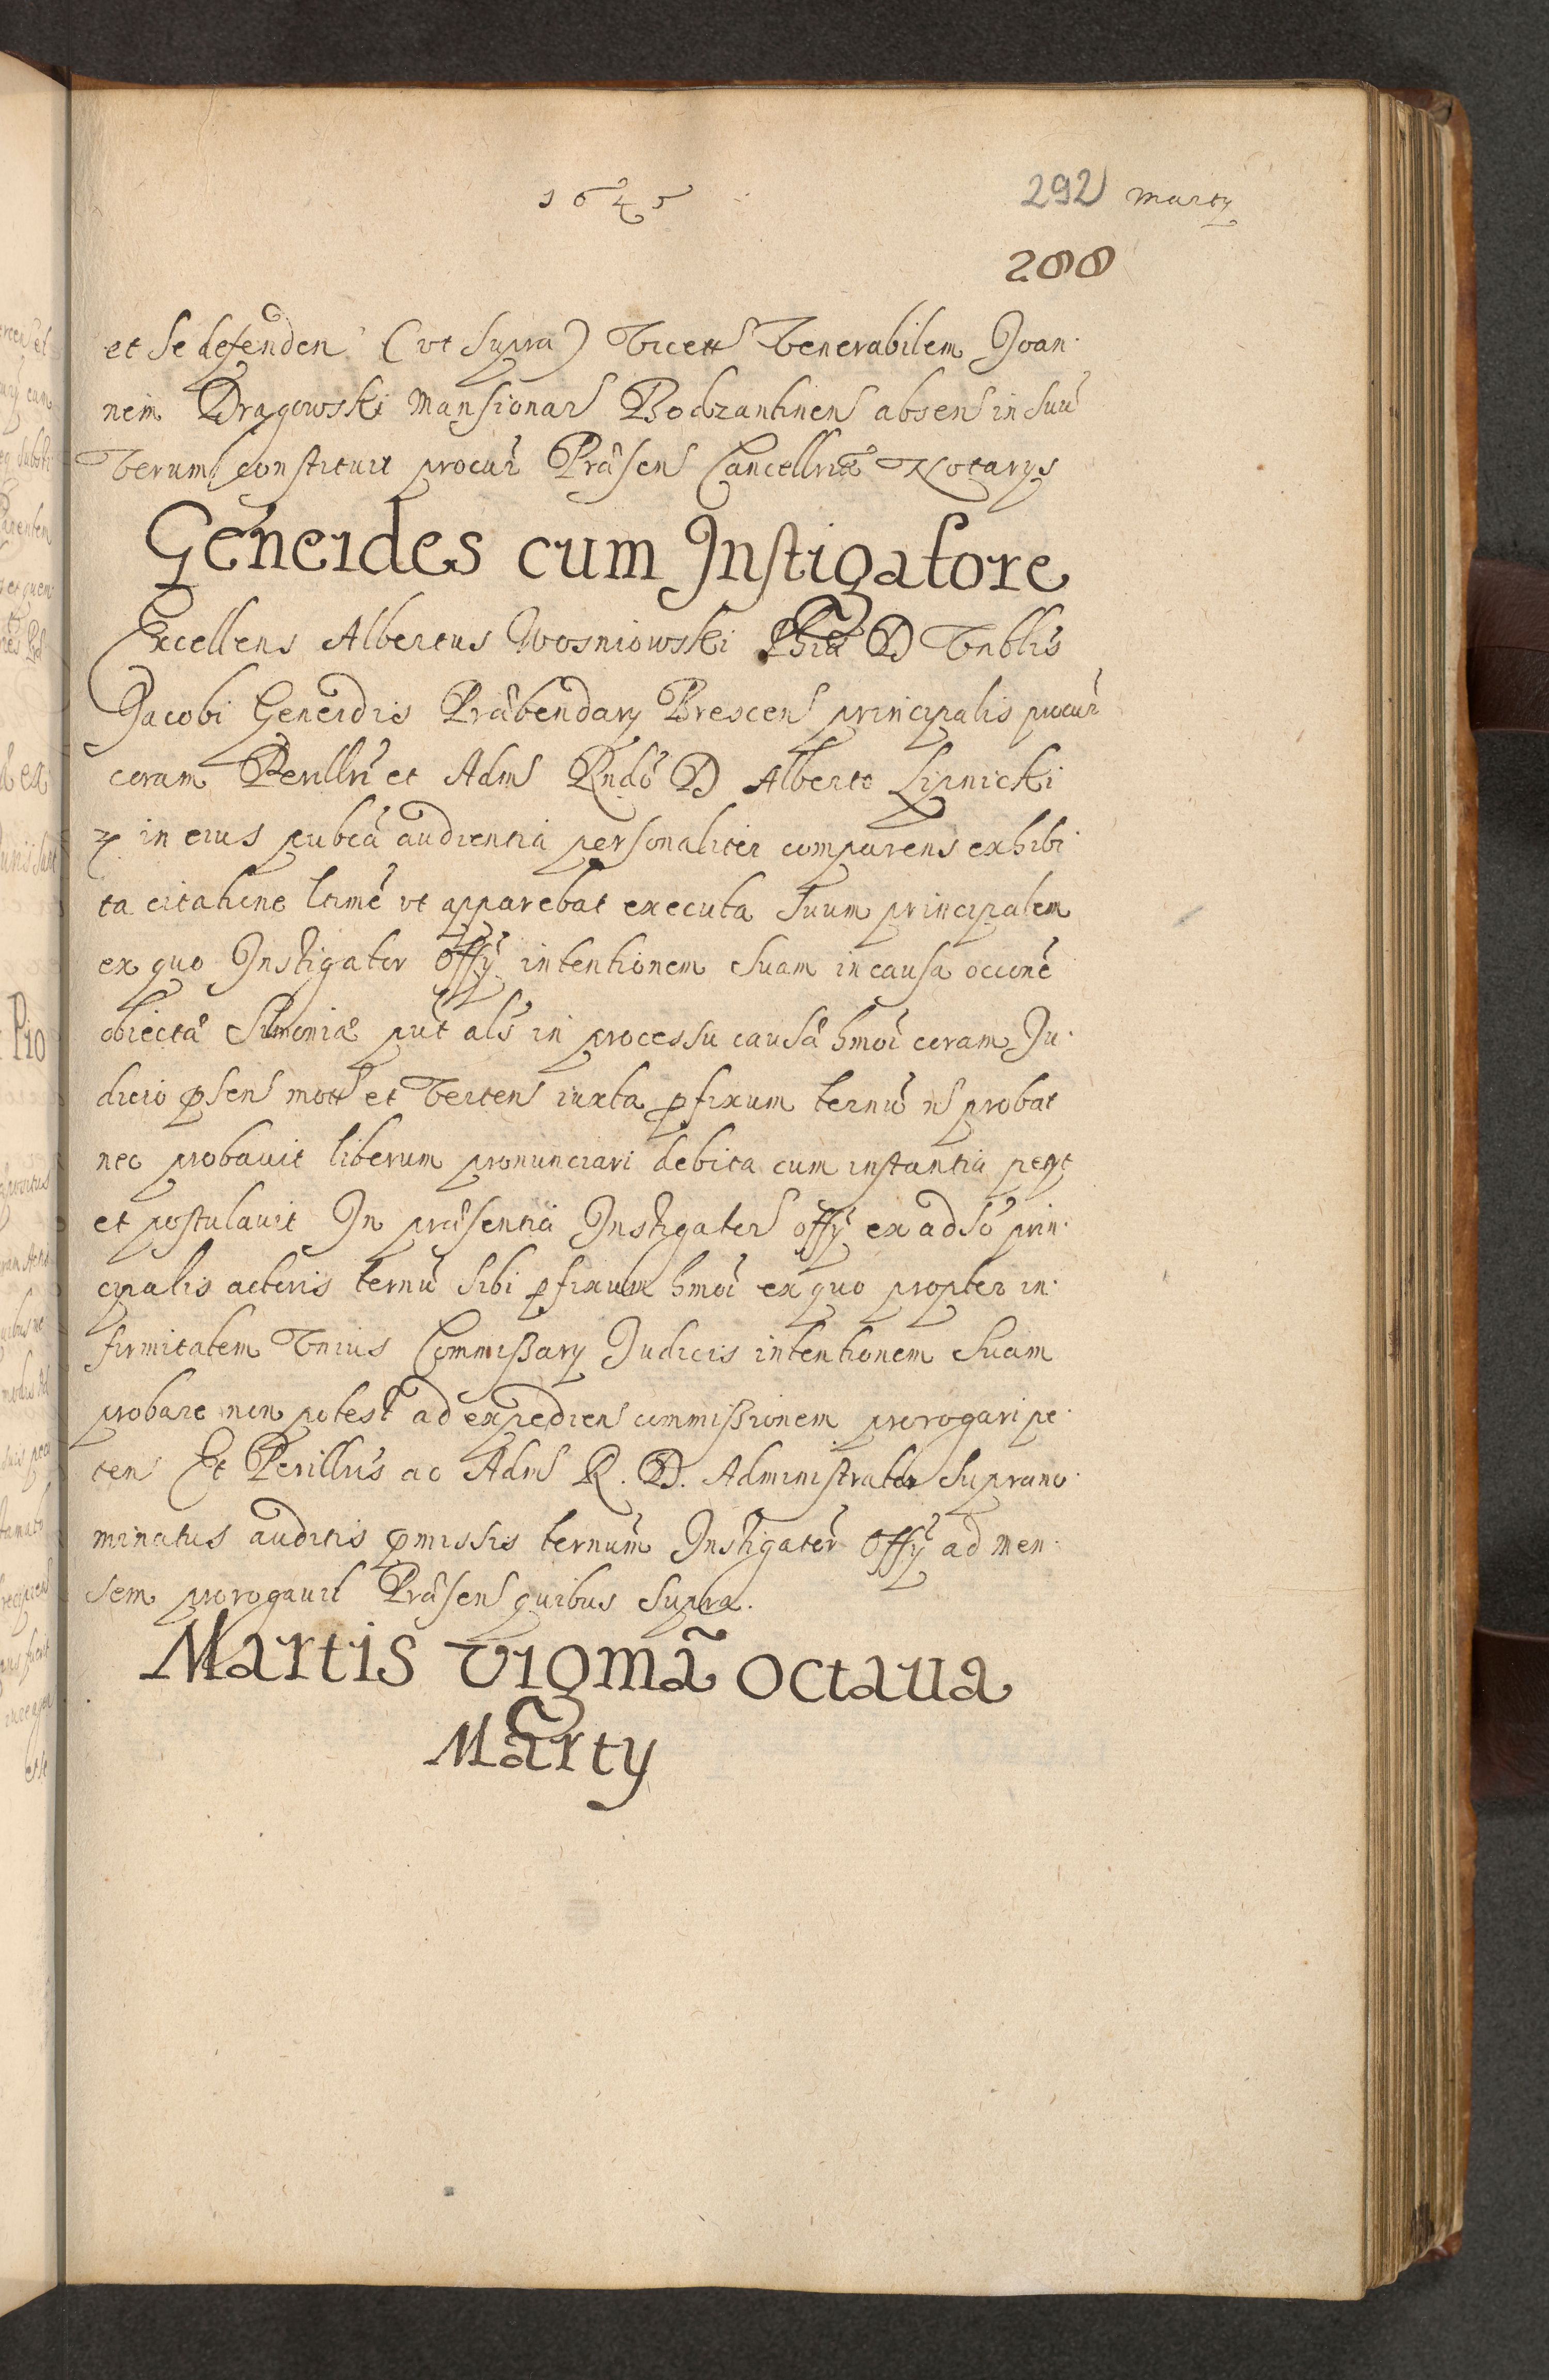 1645
292 Martÿ
288
et se defenden (vt supra) Vicett Venerabilem Joan·
nem Dragowski Mansionar Bodzantinen absen in suũ
Verum constituit procur̃ Præsen Cancellriæ Notarÿs
Geneides cum Instigatore
Excellens Albertus Wosniowski Phiæ D Vnblis
Jacobi Geneidis Præbendarÿ Brescen principalis procur̃
coram Perillri et Adm Rndo D Alberto Lipnicki
& in eius pubca audientia personaliter comparens exhibi·
ta citatione ltime vt apparebat executa suum principalem
ex quo Instigator Offÿ intentionem suam in causa occone
obiectæ Simoniæ put als in processu causæ hmoi coram Ju·
dicio psen mott et Verten iuxta pfixum ternũ n probat
nec probauit liberum pronunciari debita cum instantia petÿt
et postulauit In præsentia Instigator offÿ ex adso prin·
cipalis actoris ternũ sibi pfixum hmoi ex quo propter in·
firmitatem Vnius Commißarÿ Judicis intentionem suam
probare non potest ad expedien commißionem prorogari pe·
ten Et Perillris ac Adm R. D. Administrator supranο·
minatus auditis pmissis ternum Instigatori Offÿ ad men·
sem prorogauit Præsen quibus supra.
Martis vigmã octaua
Martÿ